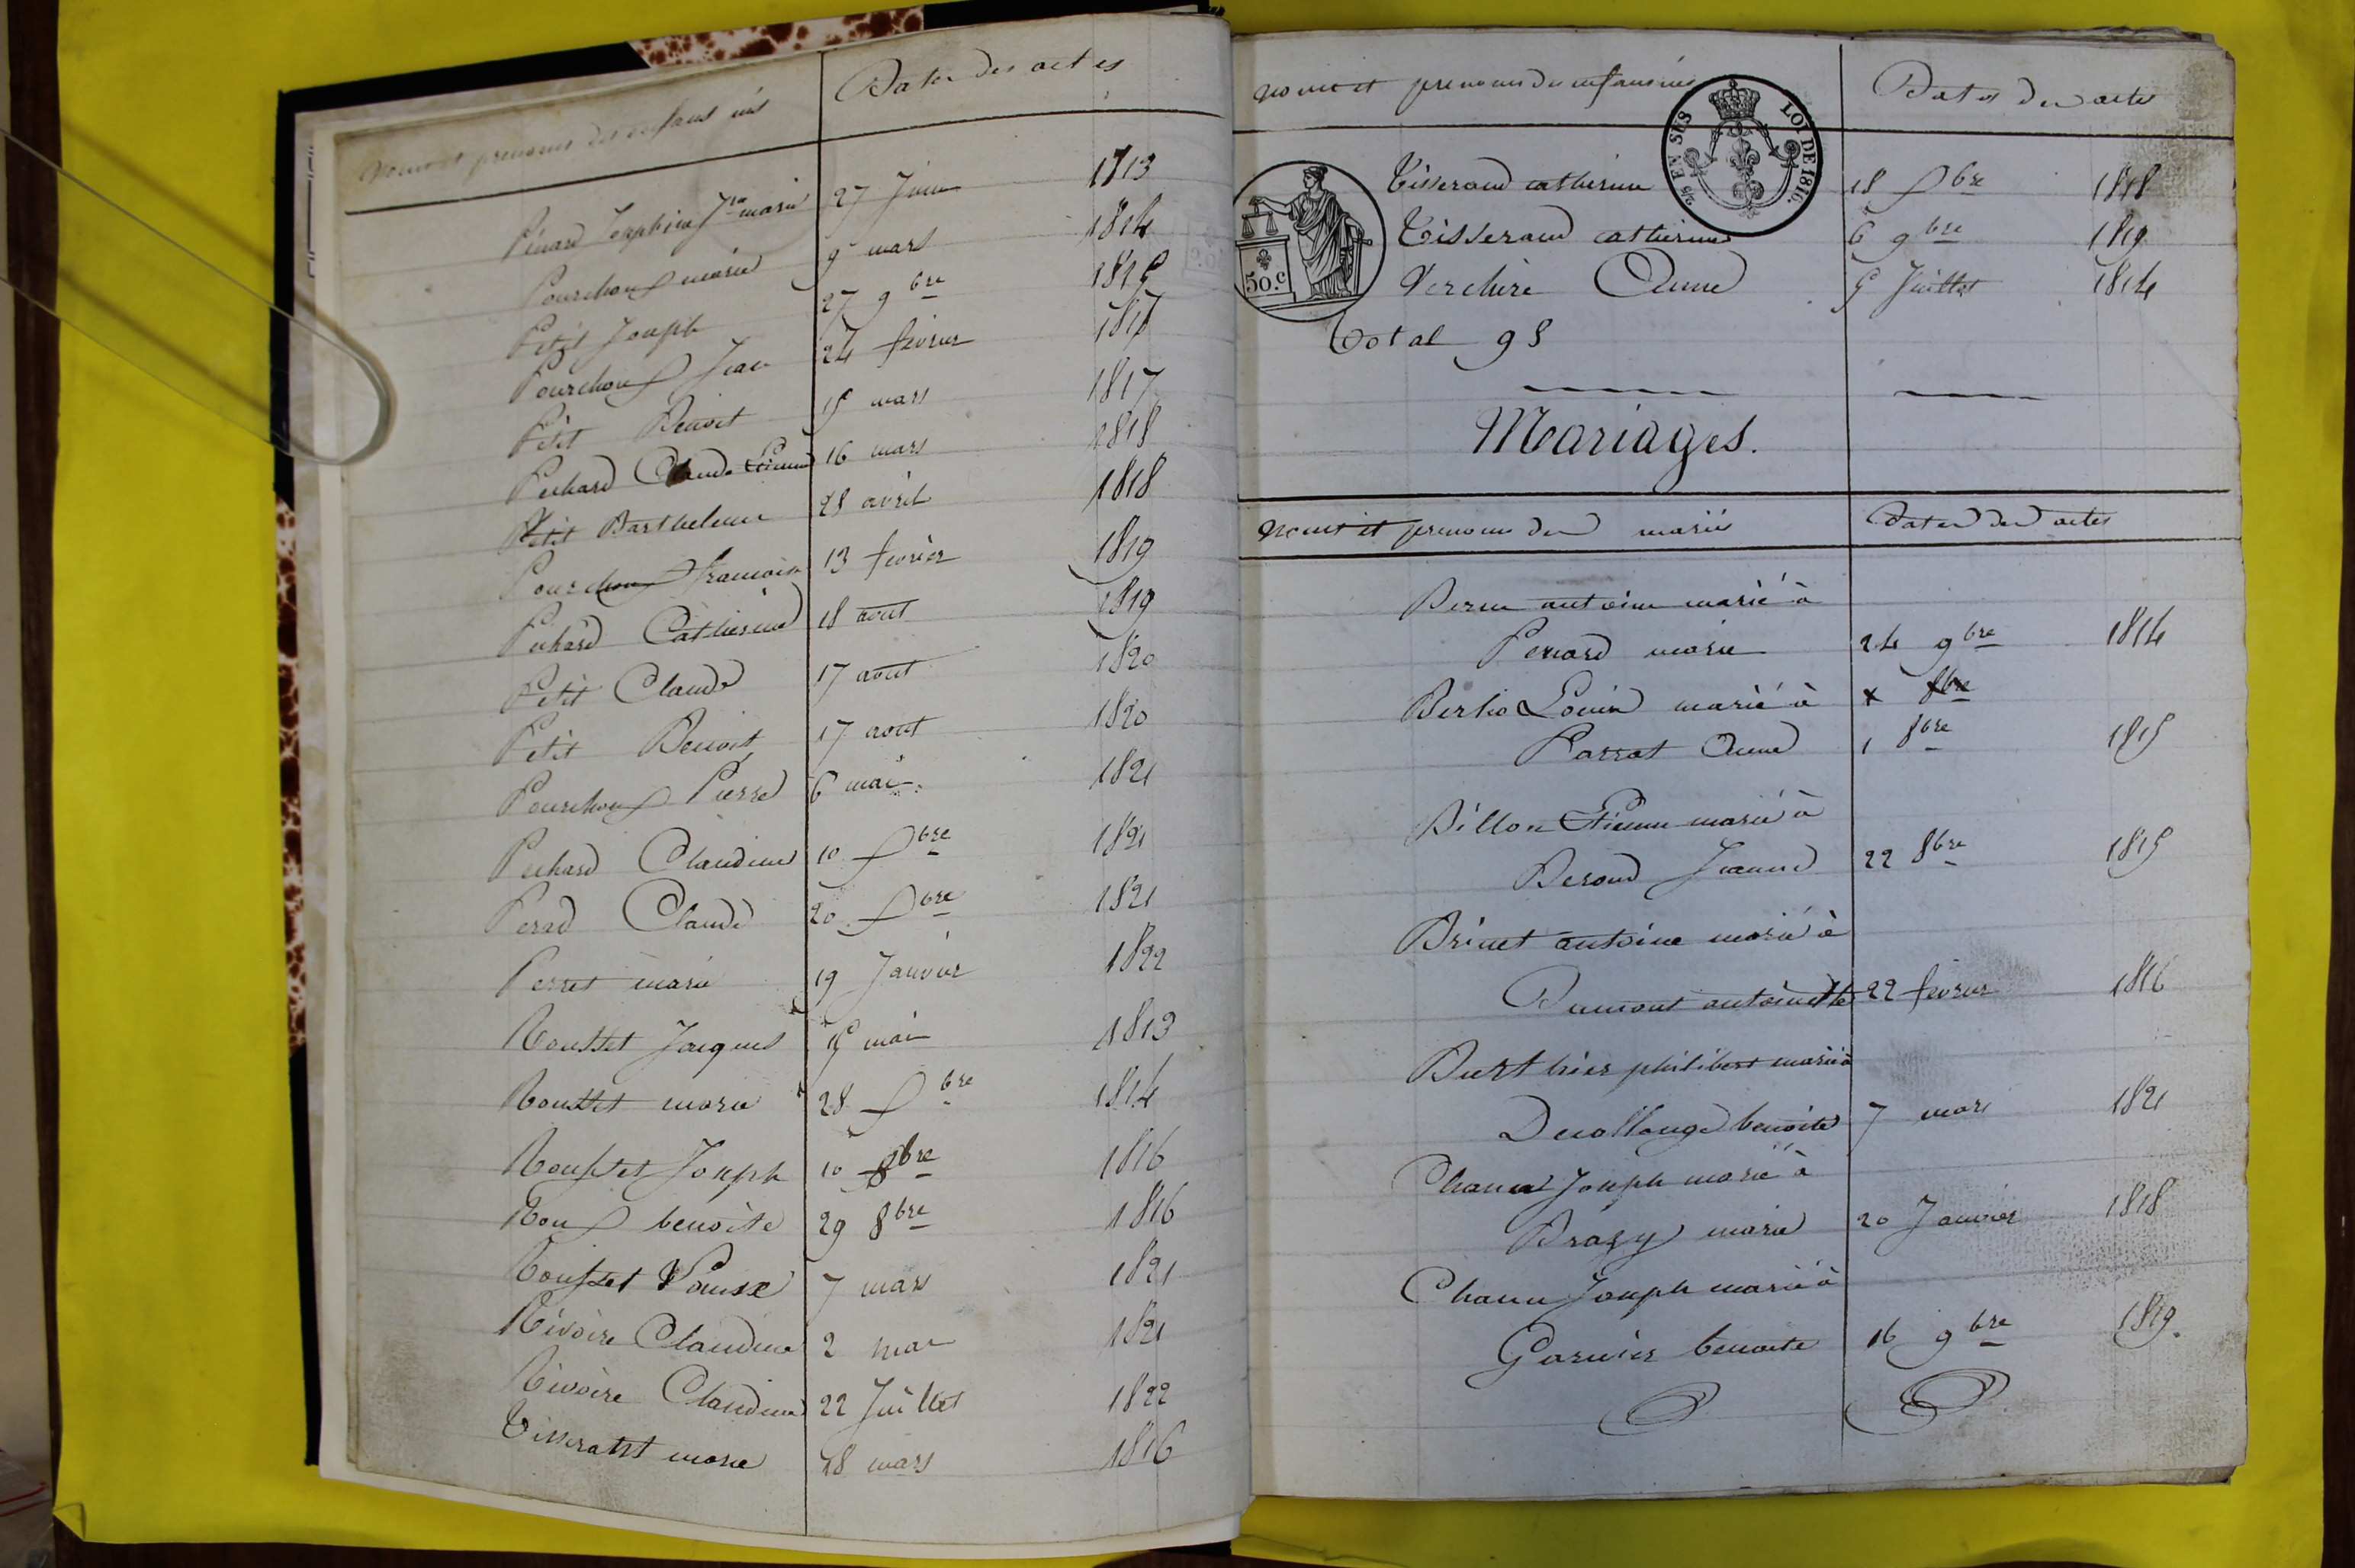 Noms et prenoms des enfans nés Dates des actes
Pinard Josephine Jne marie 27 Juin 1813
Pourchoux marie 9 mars 1814
Petit Joseph 27 9bre 1815
Pourchoux Jean 24 février 1817
Petit Benoit 15 mars 1817
Pechard Claude Etienne 16 mars 1818
Petit Barthelemi 28 avril 1818
Pourchoux francoise 13 fevrier 1819
Pechard Catherine 18 aout 1819
Petit Claude 17 aout 1820
Petit Benoit 17 aout 1820
Pourchoux Pierre 6 mai 1821
Pechard Claudine 10 Xbre 1821
Perad Claude 20 Xbre 1821
Perret marie 19 Janvier 1822
Rousset Jacques 15 mai 1813
Rousset marie 28 Xbre 1814
Rousset Joseph 10 8bre 1816
Roux benoite 29 8bre 1816
Rousset 7 mars 1821
Rivoire Claudine 2 mar 1821
Rivoire Claudine 22 Juillet 1822
Tisserant marie 18 mars 1816
Noms et prenoms des enfans nés Dates des actes
EN SUS LOI DE 1816.
50.c
Tisserand catherine 18 Xbre 1818
Tisserand catherine 6 9bre 1819
Verchere Anne 5 Juillet 1814
Total 95
Mariages.
Noms et prenoms des mariés Dates des actes
antoine marié à
Penard marie 24 9bre 1814
Louis marié à x 8bre
Parrat Anne 1 8bre 1815
Billon Etienne marié à
Beroud Jeanne 22 8bre 1815
Brinet antoine marié à
Dumont antoinette 22 fevrier 1816
Burthier philibert marié à
Decollonge benoite 7 mars 1821
Joseph marié à
Brazy marie 20 Janvier 1818
Joseph marié à
Garnier benoite 16 9bre 1819.